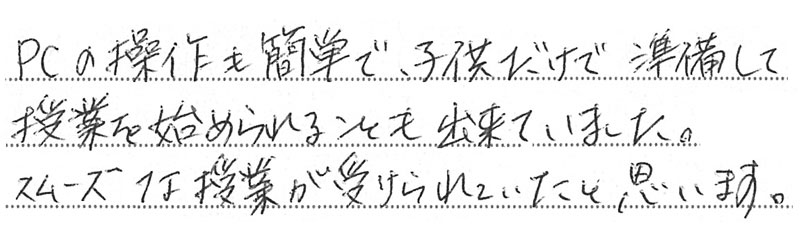 PCの操作も簡単で、子供だけで準備して
授業を始められることも出来ていました。
スムーズな授業が受けられていたと思います。